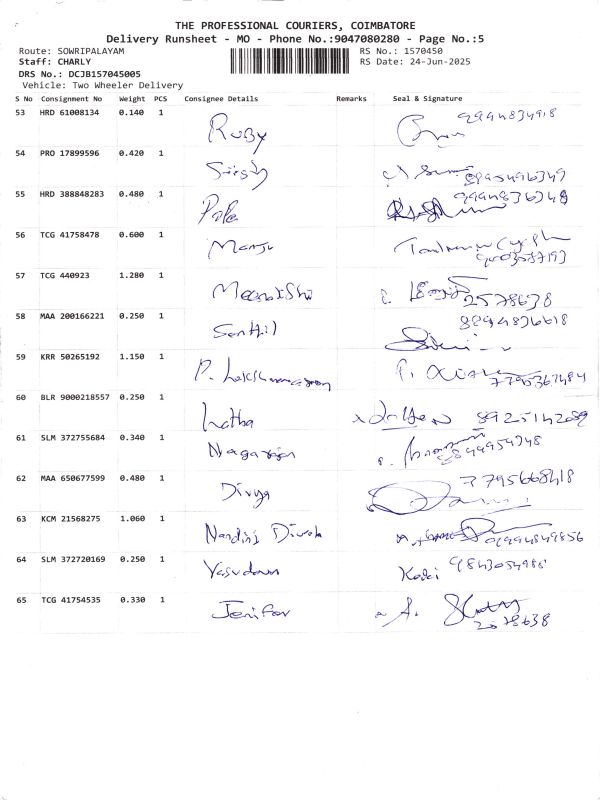 THE PROFESSIONAL COURIERS, COIMBATORE
Delivery Runsheet - MO - Phone No.:9047080280 - Page No.:5
Route: SOWRIPALAYAM RS No.: 1570450
Staff: CHARLY RS Date: 24-Jun-2025
DRS No.: DCJB157045005
Vehicle: Two Wheeler Delivery
S No Consignment No Weight PCS Consignee Details Remarks Seal & Signature
53 HRD 61008134 0.140 1 Ruby 9994834918
54 PRO 17899596 0.420 1
55 HRD 388848283 0.480 1
56 TCG 41758478 0.600 1 Manju
57 TCG 440923 1.280 1 Meenakshi 2578638
58 MAA 200166221 0.250 1 Senthil
59 KRR 50265192 1.150 1 P. Lakshmanan
60 BLR 9000218557 0.250 1 Latha 8925142089
61 SLM 372755684 0.340 1 Nagarajan
62 MAA 650677599 0.480 1 Divya 7795668418
63 KCM 21568275 1.060 1 Nandini
64 SLM 372720169 0.250 1
65 TCG 41754535 0.330 1 Jenifar 2578638